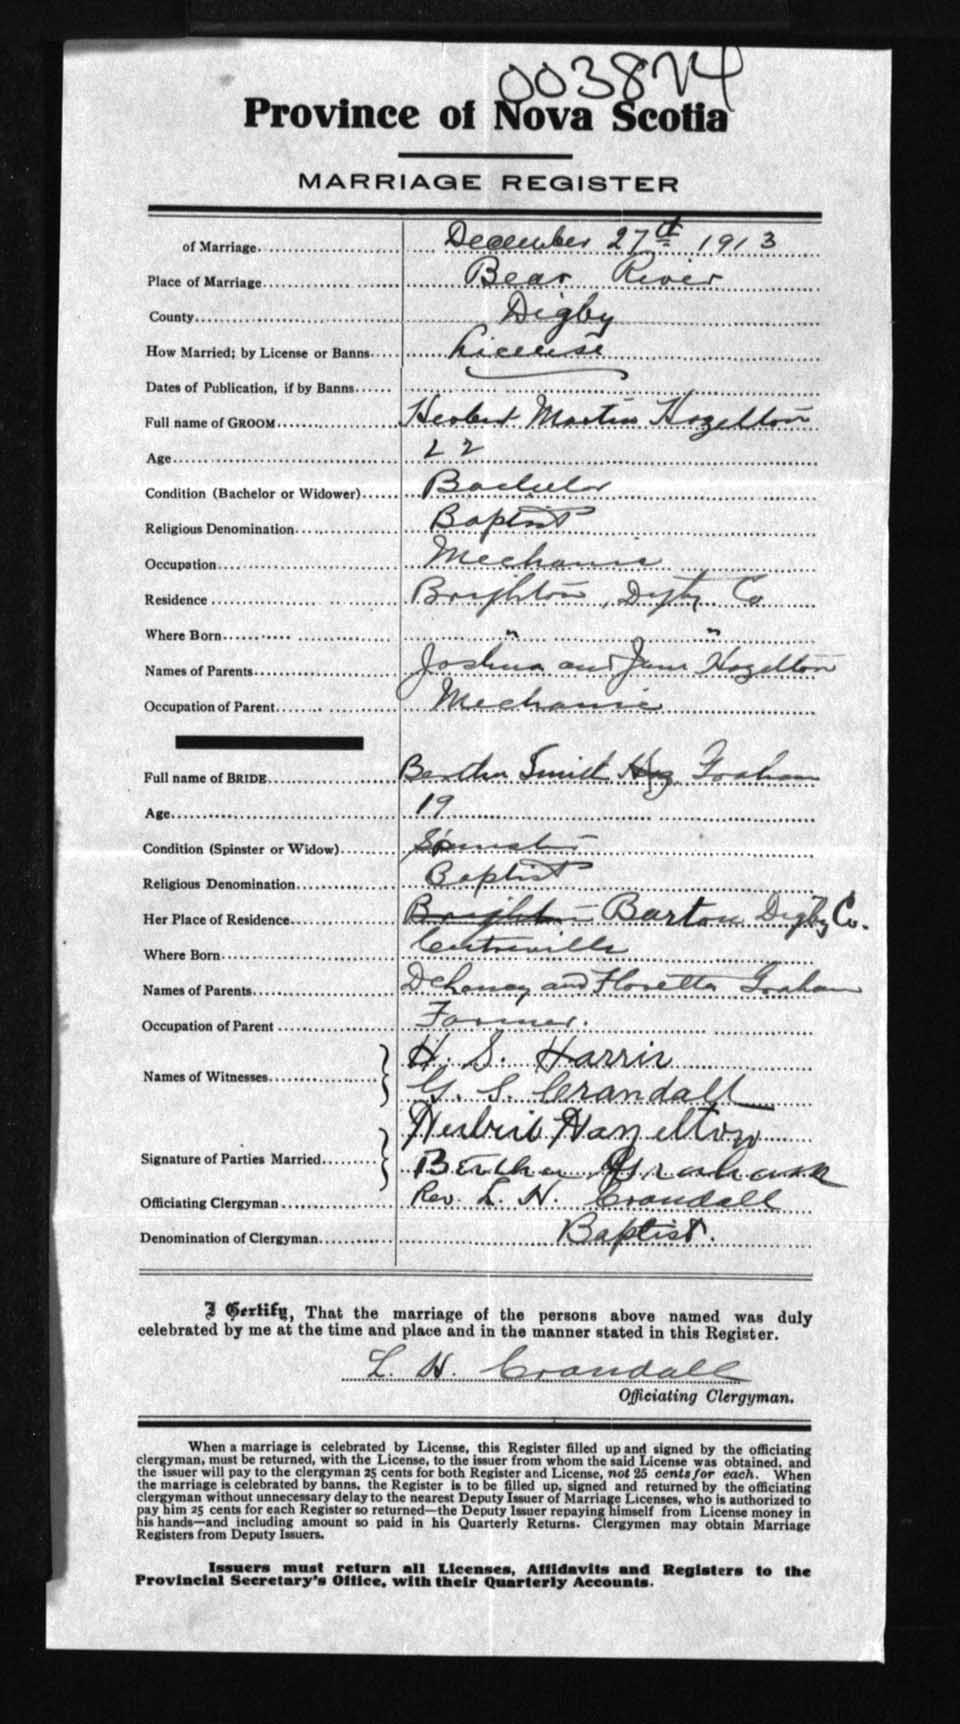 003874
Province of Nova Scotia
MARRIAGE REGISTER
of Marriage. December 27th 1913
Place of Marriage. Bear River
County. Digby
How Married; by License or Banns. License
Dates of Publication, if by Banns.
Full name of GROOM. Herbert Martin Hazelton
Age. 22
Condition (Bachelor or Widower). Bachelor
Religious Denomination. Baptist
Occupation. Mechanic
Residence Brighton, Digby Co
Where Born. " "
Names of Parents. Joshua and Jane Hazelton
Occupation of Parent. Mechanic
Full name of BRIDE. Bertha Smith Haz Graham
Age. 19
Condition (Spinster or Widow). Spinster
Religious Denomination. Baptist
Her Place of Residence. Brighton Barton Digby Co.
Where Born. Centreville
Names of Parents. and Floretta Graham
Occupation of Parent Farmer.
Names of Witnesses. H. S. Harris
G. S. Crandall
Signature of Parties Married. Herbert Hazelton
Bertha Graham
Officiating Clergyman Rev. L. H. Crandall
Denomination of Clergyman. Baptist.
I Certify, That the marriage of the persons above named was duly
celebrated by me at the time and place and in the manner stated in this Register.
L. H. Crandall
Officiating Clergyman.
When a marriage is celebrated by License, this Register filled up and signed by the officiating
clergyman, must be returned, with the License, to the issuer from whom the said License was obtained, and
the issuer will pay to the clergyman 25 cents for both Register and License, not 25 cents for each. When
the marriage is celebrated by banns, the Register is to be filled up, signed and returned by the officiating
clergyman without unnecessary delay to the nearest Deputy Issuer of Marriage Licenses, who is authorized to
pay him 25 cents for each Register so returned—the Deputy Issuer repaying himself from License money in
his hands—and including amount so paid in his Quarterly Returns. Clergymen may obtain Marriage
Registers from Deputy Issuers.
Issuers must return all Licenses, Affidavits and Registers to the
Provincial Secretary's Office, with their Quarterly Accounts.